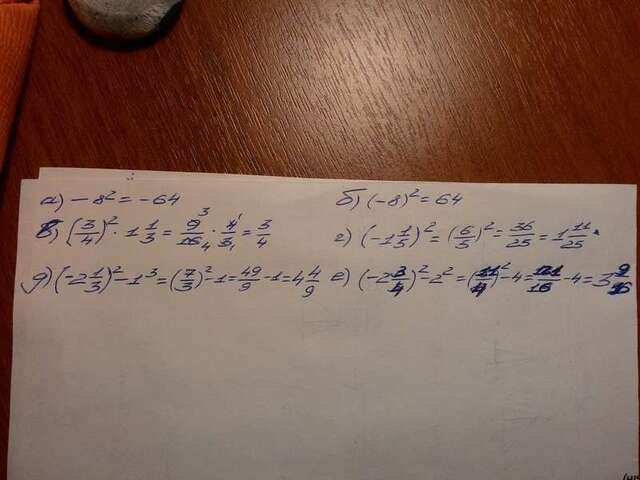 а) -8² = -64 б) (-8)² = 64
в) (3/4)² · 1 1/3 = 9/16 · 4/3 = 3/4 г) (-1 1/5)² = (6/5)² = 36/25 = 1 11/25
д) (-2 1/3)² - 1³ = (7/3)² - 1 = 49/9 - 1 = 4 4/9 е) (-2 3/4)² - 2² = (11/4)² - 4 = 121/16 - 4 = 3 9/16